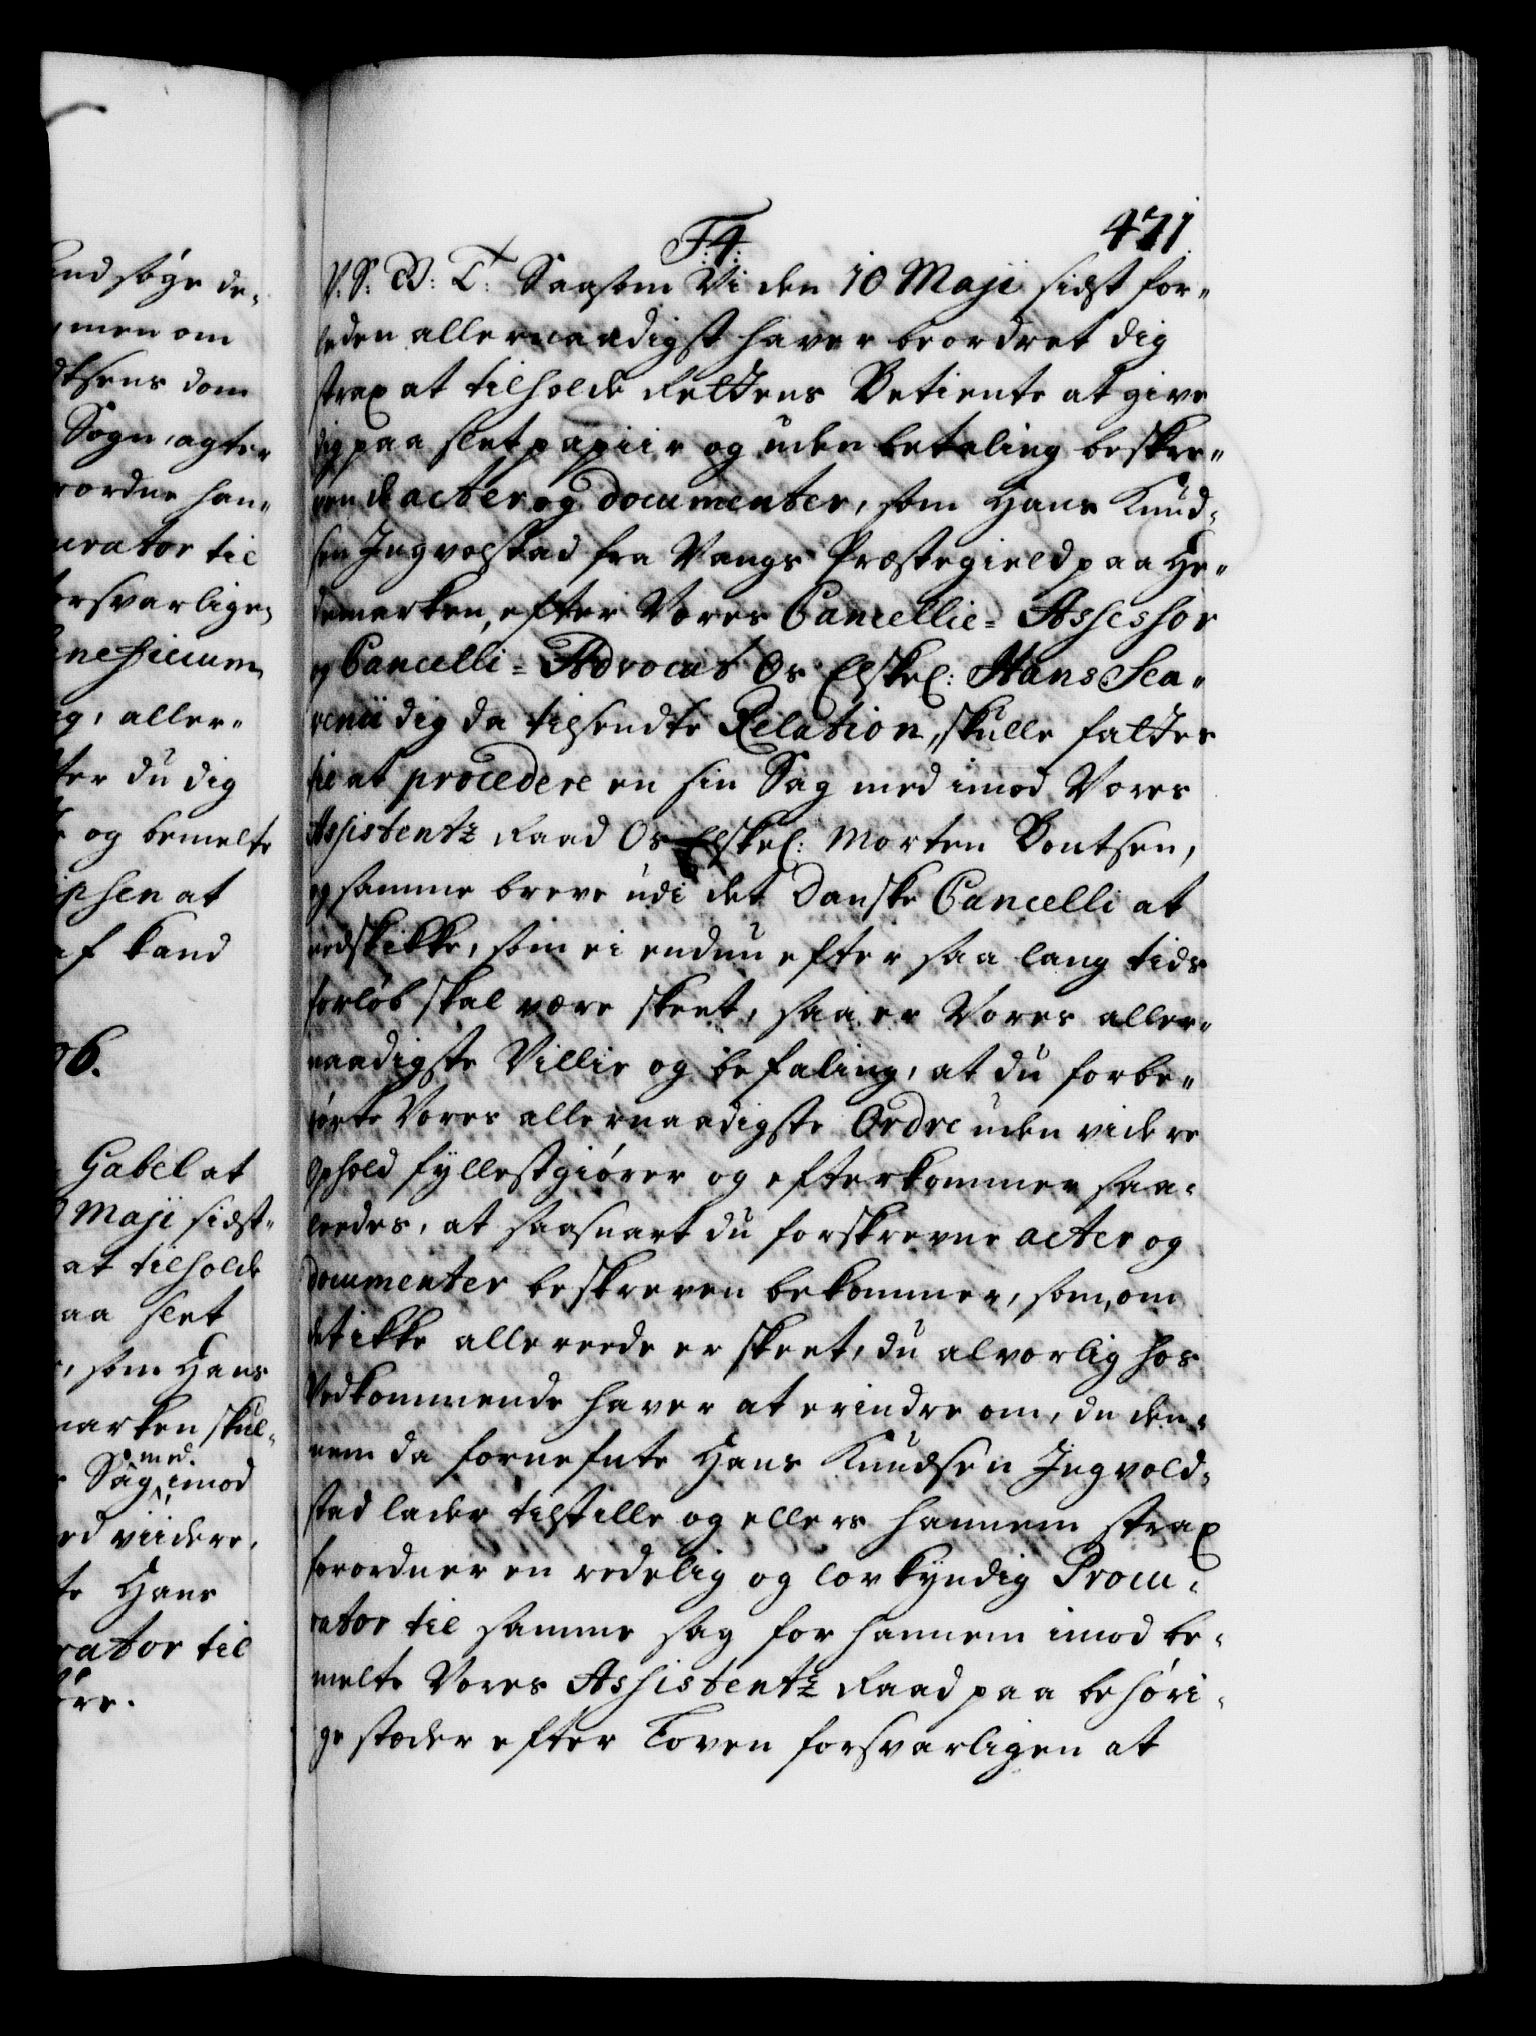 F. 4.
471.
V: S: B: T: Saasom Vi den 10 Maji sidst for-
leden allernaadigst haver beordret dig
strax at tilholde Rettens Betiente at give
dig paa slet papiir og uden betaling beskre-
ven de acter og documenter, som Hans Knud-
sen Ingvolstad fra Vangs Præstegield paa He-
demarken, efter Vores Cancellie-Assessor
og Cancelli-Advocat Os Elskel: Hans Sca-
venii dig da tilsendte Relation, skulle fattes
til at procedere en sin Sag med imod Vores
Assistentz Raad Os Elskel: Morten Bontsen,
og samme breve udi det Danske Cancelli at
nedskikke, som ei endnu efter saa lang tids
forløb skal være skeet, saa er Vores aller-
naadigste Villie og befaling, at du forbe-
rørte Vores allernaadigste Ordre uden videre
Ophold fyllestgiører og efterkommer saa-
ledes, at saasnart du forskrevne acter og
documenter beskreven bekommer, som, om
det ikke allereede er skeet, du alvorlig hos
Vedkommende haver at erindre om, du den-
nem da fornefnte Hans Knudsen Ingvold-
stad lader tilstille og ellers hannem strax
forordner en redelig og lovkyndig Procu-
rator til samme sag for hannem imod be-
melte Vores Assistentz Raad paa behøri-
ge stæder efter Loven forsvarligen at
and søge de-
men om
dom
Sogn, agter
han-
urator til
forsvarligen
beneficium
aller-
du dig
og bemelte
at
af kand
Gabel at
Maji sidst-
at tilholde
paa slet
som Hans
marken skul-
med
Sag imod
viidere,
Hans
rator til